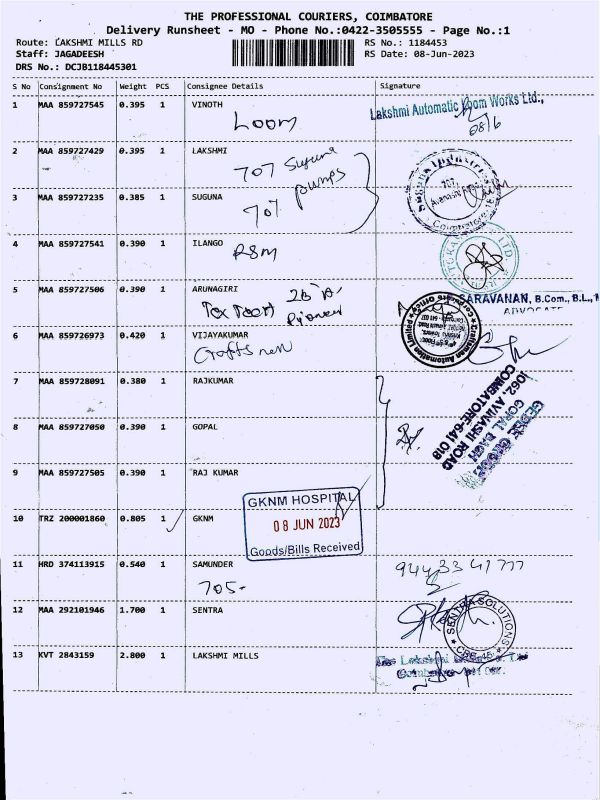 THE PROFESSIONAL COURIERS, COIMBATORE
Delivery Runsheet - MO - Phone No.:0422-3505555 - Page No.:1
Route: LAKSHMI MILLS RD
RS No.: 1184453
Staff: JAGADEESH
RS Date: 08-Jun-2023
DRS No.: DCJB118445301
S No Consignment No Weight PCS Consignee Details Signature
1 MAA 859727545 0.395 1 VINOTH
Loom
Lakshmi Automatic Loom Works Ltd.,
08/6
2 MAA 859727429 0.395 1 LAKSHMI
707 Suguna
pumps
3 MAA 859727235 0.385 1 SUGUNA
707
707,
Avanashi
Coimbatore-18
4 MAA 859727541 0.390 1 ILANGO
RSM
5 MAA 859727506 0.390 1 ARUNAGIRI
Tex Tech
Pioneer
SARAVANAN, B.Com., B.L.,
ADVOCATE
6 MAA 859726973 0.420 1 VIJAYAKUMAR
Craftsman
Craftsman Automation Limited
Corporate Office
7 MAA 859728091 0.380 1 RAJKUMAR
GEDEE
GOPAL BAGH
1062, AVINASHI ROAD
COIMBATORE-641 018
8 MAA 859727050 0.390 1 GOPAL
9 MAA 859727505 0.390 1 RAJ KUMAR
10 TRZ 200001860 0.805 1 GKNM
GKNM HOSPITAL
08 JUN 2023
Goods/Bills Received
11 HRD 374113915 0.540 1 SAMUNDER
705-
9443341777
12 MAA 292101946 1.700 1 SENTRA
SENTRA SOLUTIONS
CBE-45
13 KVT 2843159 2.800 1 LAKSHMI MILLS
Lakshmi